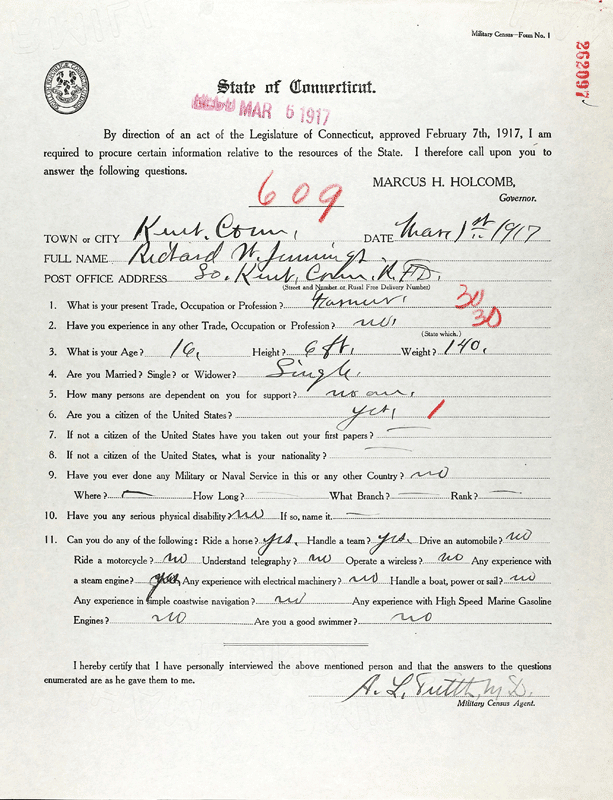 Military Census—Form No. 1
262097
State of Connecticut.
MAR 5 1917
By direction of an act of the Legislature of Connecticut, approved February 7th, 1917, I am
required to procure certain information relative to the resources of the State. I therefore call upon you to
answer the following questions.
MARCUS H. HOLCOMB,
Governor.
609
TOWN or CITY Kent. Conn, DATE Mar 1st 1917
FULL NAME Richard W. Jennings.
POST OFFICE ADDRESS So. Kent, Conn. R.F.D.
(Street and Number or Rural Free Delivery Number)
1. What is your present Trade, Occupation or Profession? Farmer. 30
2. Have you experience in any other Trade, Occupation or Profession? no. 30
(State which.)
3. What is your Age? 16, Height? 6 ft. Weight? 140.
4. Are you Married? Single? or Widower? Single.
5. How many persons are dependent on you for support? no one,
6. Are you a citizen of the United States? yes, /
7. If not a citizen of the United States have you taken out your first papers? —
8. If not a citizen of the United States, what is your nationality? —
9. Have you ever done any Military or Naval Service in this or any other Country? no
Where? — How Long? — What Branch? — Rank? —
10. Have you any serious physical disability? no If so, name it. —
11. Can you do any of the following: Ride a horse? yes, Handle a team? yes, Drive an automobile? no
Ride a motorcycle? no Understand telegraphy? no Operate a wireless? no Any experience with
a steam engine? yes, Any experience with electrical machinery? no Handle a boat, power or sail? no
Any experience in simple coastwise navigation? no Any experience with High Speed Marine Gasoline
Engines? no Are you a good swimmer? no
I hereby certify that I have personally interviewed the above mentioned person and that the answers to the questions
enumerated are as he gave them to me.
A. L. M.D.
Military Census Agent.